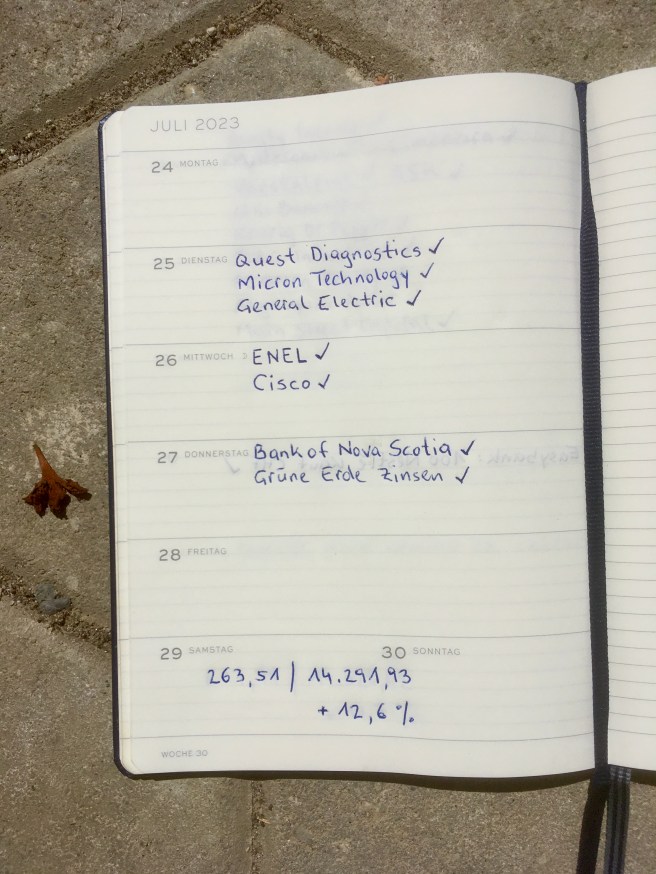 JULI 2023
24 MONTAG
25 DIENSTAG Quest Diagnostics ✓
Micron Technology ✓
General Electric ✓
26 MITTWOCH ENEL ✓
Cisco ✓
27 DONNERSTAG Bank of Nova Scotia ✓
Grüne Erde Zinsen ✓
28 FREITAG
29 SAMSTAG 30 SONNTAG
263,51 | 14.291,93
+ 12,6 %
WOCHE 30